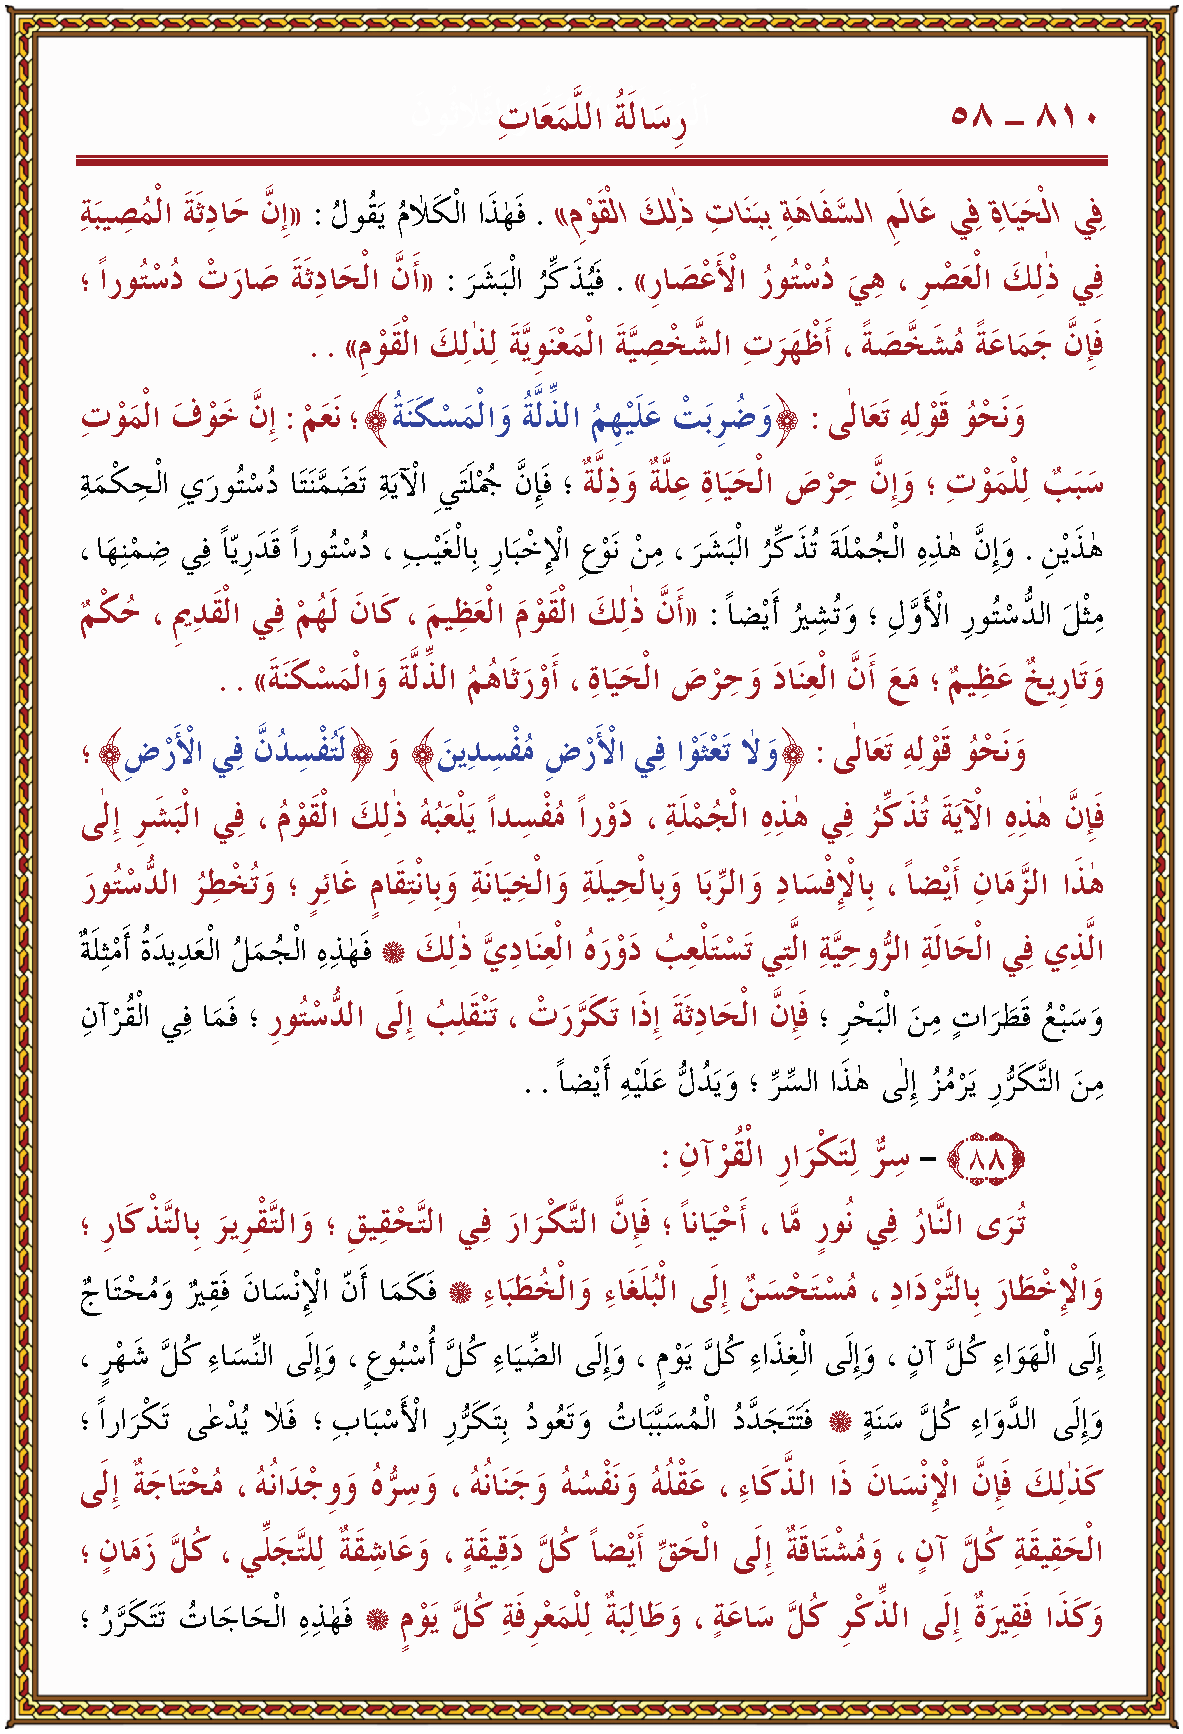 ٨١٠ – ٥٨ رِسَالَةُ اللَّمَعَاتِ
فِي الْحَيَاةِ فِي عَالَمِ السَّفَاهَةِ بِبَنَاتِ ذٰلِكَ الْقَوْمِ» . فَهٰذَا الْكَلَامُ يَقُولُ : «إِنَّ حَادِثَةَ الْمُصِيبَةِ
فِي ذٰلِكَ الْعَصْرِ ، هِيَ دُسْتُورُ الْأَعْصَارِ» . فَيُذَكِّرُ الْبَشَرَ : «أَنَّ الْحَادِثَةَ صَارَتْ دُسْتُوراً ؛
فَإِنَّ جَمَاعَةً مُشَخَّصَةً ، أَظْهَرَتِ الشَّخْصِيَّةَ الْمَعْنَوِيَّةَ لِذٰلِكَ الْقَوْمِ» . .
وَنَحْوُ قَوْلِهِ تَعَالٰى : ﴿وَضُرِبَتْ عَلَيْهِمُ الذِّلَّةُ وَالْمَسْكَنَةُ﴾ ؛ نَعَمْ : إِنَّ خَوْفَ الْمَوْتِ
سَبَبٌ لِلْمَوْتِ ؛ وَإِنَّ حِرْصَ الْحَيَاةِ عِلَّةٌ وَذِلَّةٌ ؛ فَإِنَّ جُمْلَتَيِ الْآيَةِ تَضَمَّنَتَا دُسْتُورَيِ الْحِكْمَةِ
هٰذَيْنِ . وَإِنَّ هٰذِهِ الْجُمْلَةَ تُذَكِّرُ الْبَشَرَ ، مِنْ نَوْعِ الْإِخْبَارِ بِالْغَيْبِ ، دُسْتُوراً قَدَرِيّاً فِي ضِمْنِهَا ،
مِثْلَ الدُّسْتُورِ الْأَوَّلِ ؛ وَتُشِيرُ أَيْضاً : «أَنَّ ذٰلِكَ الْقَوْمَ الْعَظِيمَ ، كَانَ لَهُمْ فِي الْقَدِيمِ ، حُكْمٌ
وَتَارِيخٌ عَظِيمٌ ؛ مَعَ أَنَّ الْعِنَادَ وَحِرْصَ الْحَيَاةِ ، أَوْرَثَاهُمُ الذِّلَّةَ وَالْمَسْكَنَةَ» . .
وَنَحْوُ قَوْلِهِ تَعَالٰى : ﴿وَلَا تَعْثَوْا فِي الْأَرْضِ مُفْسِدِينَ﴾ وَ ﴿لَتُفْسِدُنَّ فِي الْأَرْضِ﴾ ؛
فَإِنَّ هٰذِهِ الْآيَةَ تُذَكِّرُ فِي هٰذِهِ الْجُمْلَةِ ، دَوْراً مُفْسِداً يَلْعَبُهُ ذٰلِكَ الْقَوْمُ ، فِي الْبَشَرِ إِلٰى
هٰذَا الزَّمَانِ أَيْضاً ، بِالْإِفْسَادِ وَالرِّبَا وَبِالْحِيلَةِ وَالْخِيَانَةِ وَبِانْتِقَامٍ غَائِرٍ ؛ وَتُخْطِرُ الدُّسْتُورَ
الَّذِي فِي الْحَالَةِ الرُّوحِيَّةِ الَّتِي تَسْتَلْعِبُ دَوْرَهُ الْعِنَادِيَّ ذٰلِكَ ۞ فَهٰذِهِ الْجُمَلُ الْعَدِيدَةُ أَمْثِلَةٌ
وَسَبْعُ قَطَرَاتٍ مِنَ الْبَحْرِ ؛ فَإِنَّ الْحَادِثَةَ إِذَا تَكَرَّرَتْ ، تَنْقَلِبُ إِلَى الدُّسْتُورِ ؛ فَمَا فِي الْقُرْآنِ
مِنَ التَّكَرُّرِ يَرْمُزُ إِلٰى هٰذَا السِّرِّ ؛ وَيَدُلُّ عَلَيْهِ أَيْضاً . .
﴿٨٨﴾ – سِرٌّ لِتَكْرَارِ الْقُرْآنِ :
تُرَى النَّارُ فِي نُورٍ مَّا ، أَحْيَاناً ؛ فَإِنَّ التَّكْرَارَ فِي التَّحْقِيقِ ؛ وَالتَّقْرِيرَ بِالتَّذْكَارِ ؛
وَالْإِخْطَارَ بِالتَّرْدَادِ ، مُسْتَحْسَنٌ إِلَى الْبُلَغَاءِ وَالْخُطَبَاءِ ۞ فَكَمَا أَنّ الْإِنْسَانَ فَقِيرٌ وَمُحْتَاجٌ
إِلَى الْهَوَاءِ كُلَّ آنٍ ، وَإِلَى الْغِذَاءِ كُلَّ يَوْمٍ ، وَإِلَى الضِّيَاءِ كُلَّ أُسْبُوعٍ ، وَإِلَى النِّسَاءِ كُلَّ شَهْرٍ ،
وَإِلَى الدَّوَاءِ كُلَّ سَنَةٍ ۞ فَتَتَجَدَّدُ الْمُسَبَّبَاتُ وَتَعُودُ بِتَكَرُّرِ الْأَسْبَابِ ؛ فَلَا يُدْعٰى تَكْرَاراً ؛
كَذٰلِكَ فَإِنَّ الْإِنْسَانَ ذَا الذَّكَاءِ ، عَقْلُهُ وَنَفْسُهُ وَجَنَانُهُ ، وَسِرُّهُ وَوِجْدَانُهُ ، مُحْتَاجَةٌ إِلَى
الْحَقِيقَةِ كُلَّ آنٍ ، وَمُشْتَاقَةٌ إِلَى الْحَقِّ أَيْضاً كُلَّ دَقِيقَةٍ ، وَعَاشِقَةٌ لِلتَّجَلِّي ، كُلَّ زَمَانٍ ؛
وَكَذَا فَقِيرَةٌ إِلَى الذِّكْرِ كُلَّ سَاعَةٍ ، وَطَالِبَةٌ لِلْمَعْرِفَةِ كُلَّ يَوْمٍ ۞ فَهٰذِهِ الْحَاجَاتُ تَتَكَرَّرُ ؛